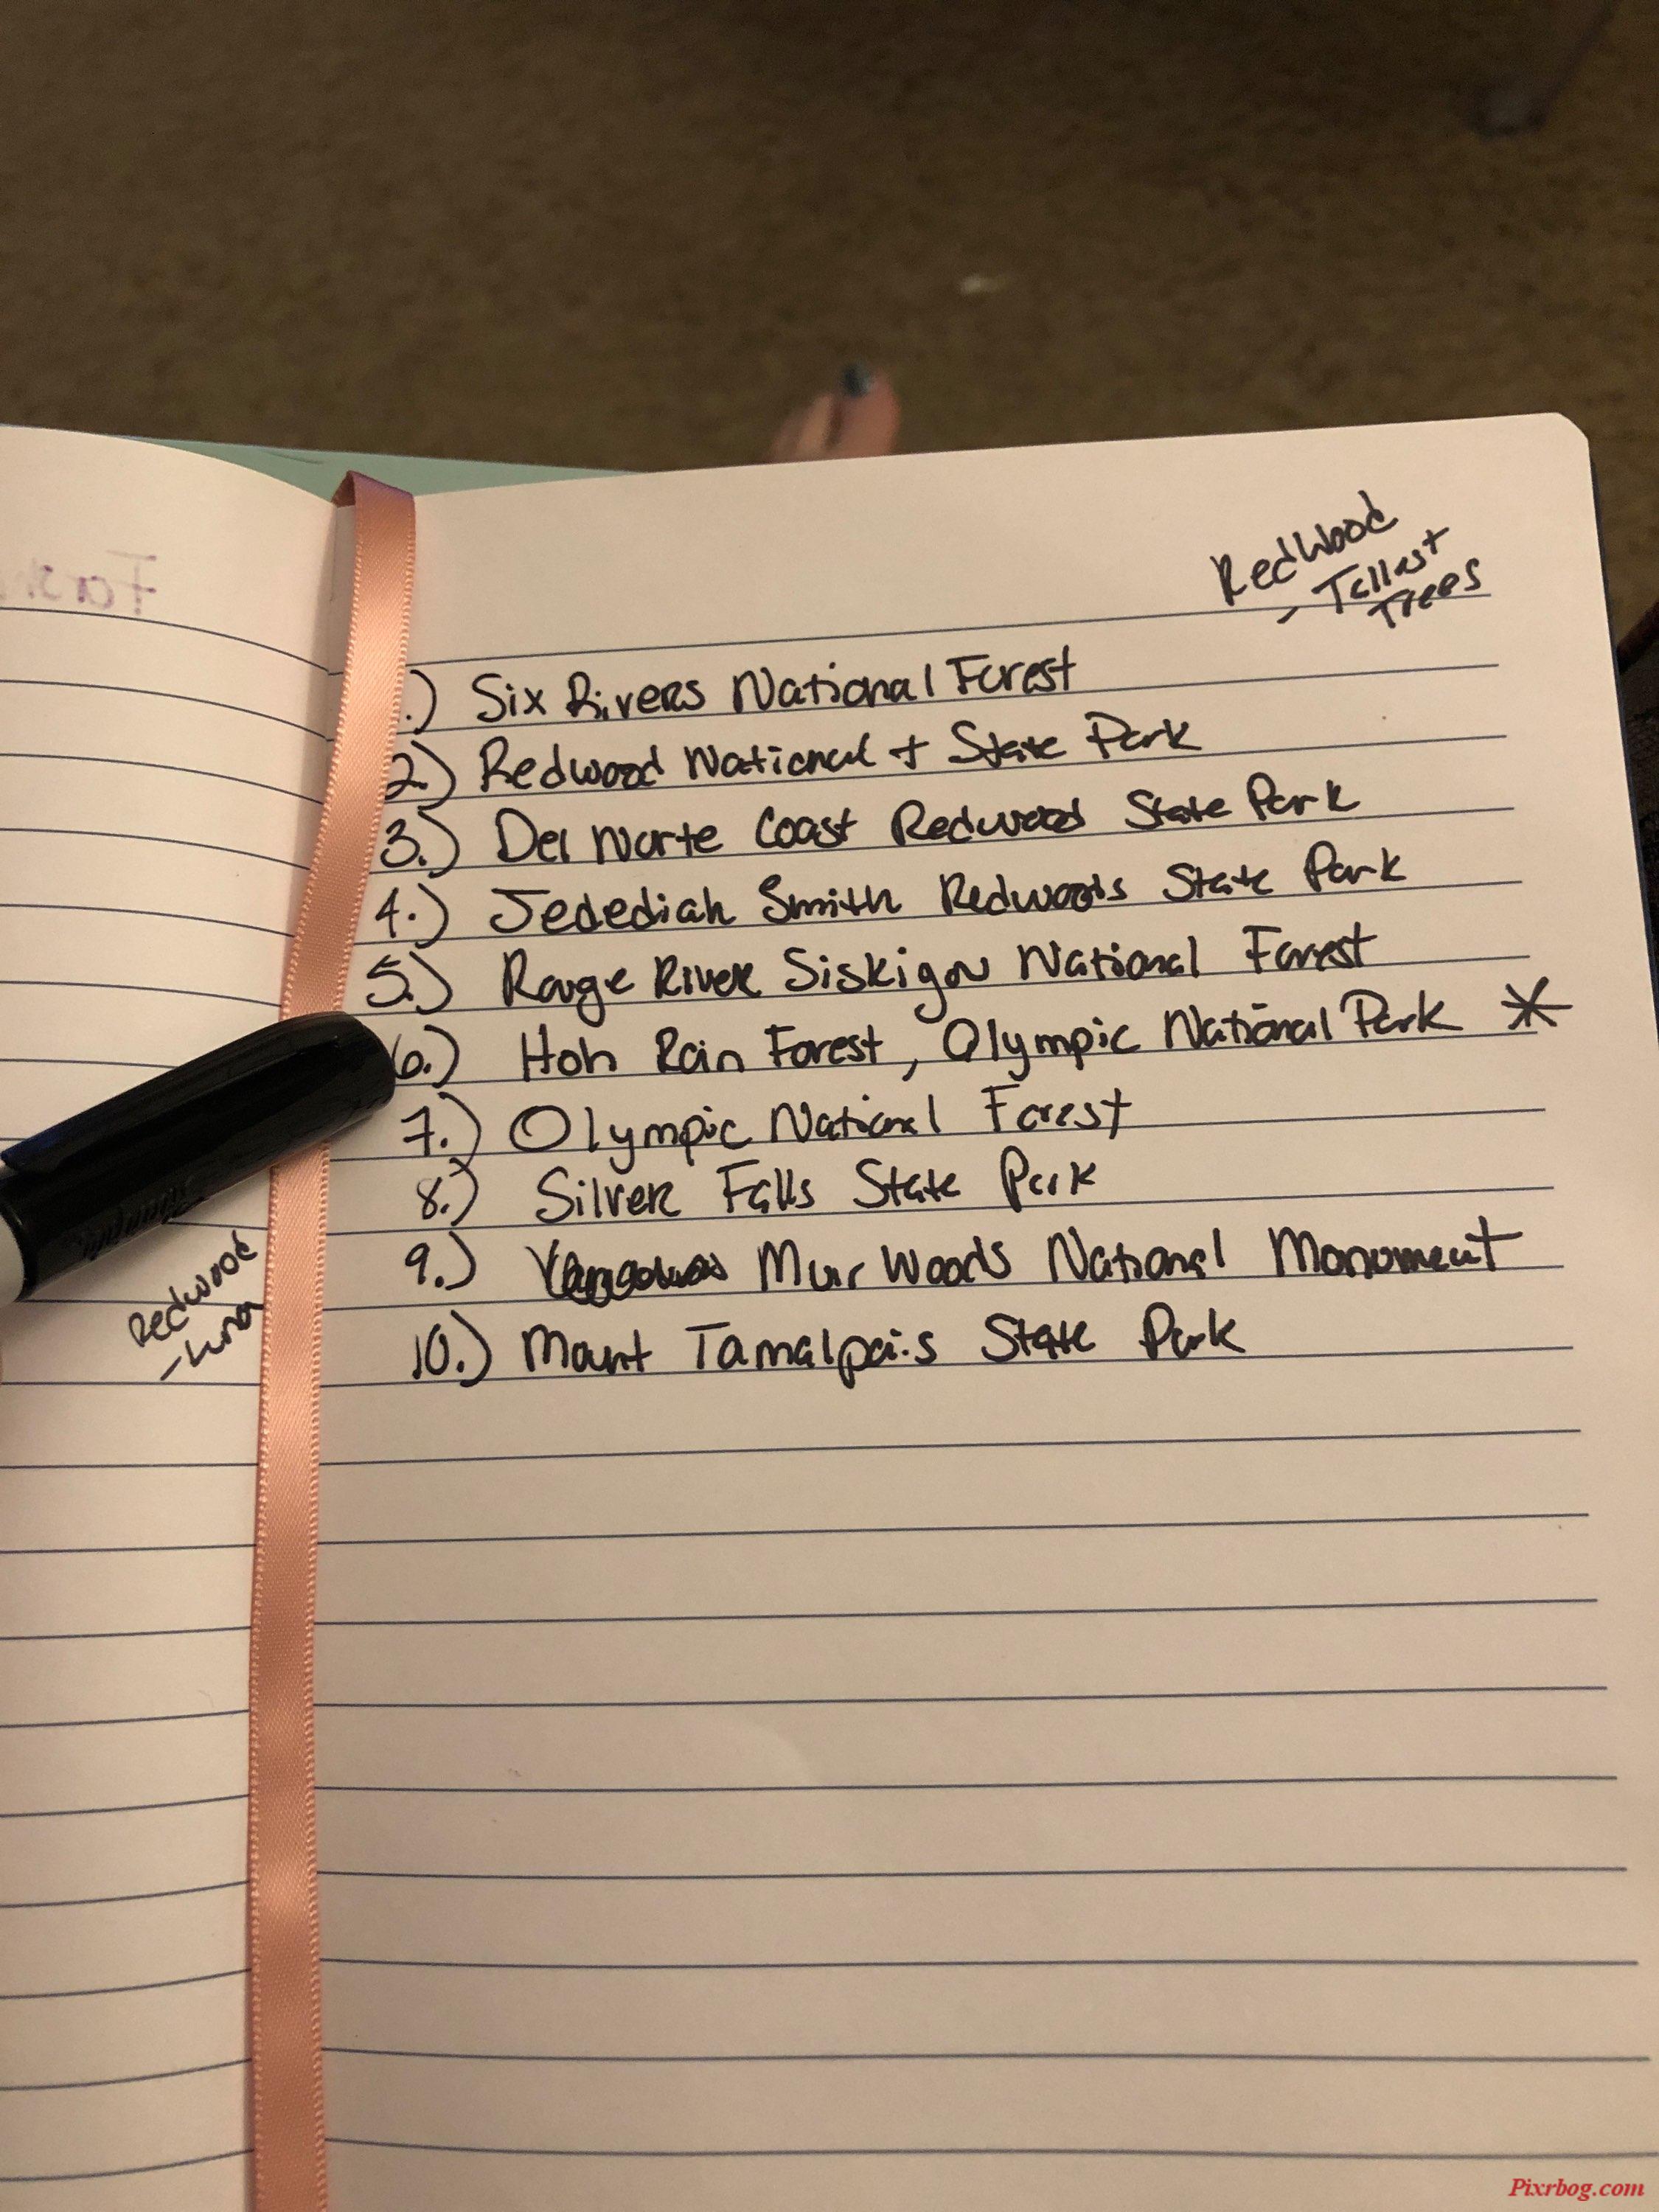 RedWood
- Tallest
Trees
1.) Six Rivers National Forest
2.) Redwood National + State Park
3.) Del Norte Coast Redwoods State Park
4.) Jedediah Smith Redwoods State Park
5.) Rouge River Siskiyou National Forest
6.) Hoh Rain Forest, Olympic National Park *
7.) Olympic National Forest
8.) Silver Falls State Park
9.) Muir Woods National Monument
10.) Mount Tamalpais State Park
Redwood
- Luna
Pixrbog.com